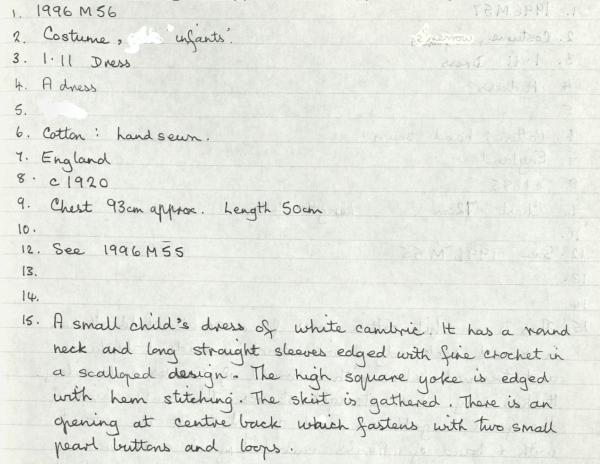 1. 1996 M 56
2. Costume, infants'.
3. 1.11 Dress
4. A dress
5.
6. Cotton: hand sewn.
7. England
8. c 1920
9. Chest 93cm approx. Length 50cm
10.
12. See 1996 M 55
13.
14.
15. A small child's dress of white cambric. It has a round
neck and long straight sleeves edged with fine crochet in
a scalloped design. The high square yoke is edged
with hem stitching. The skirt is gathered. There is an
opening at centre back which fastens with two small
pearl buttons and loops.